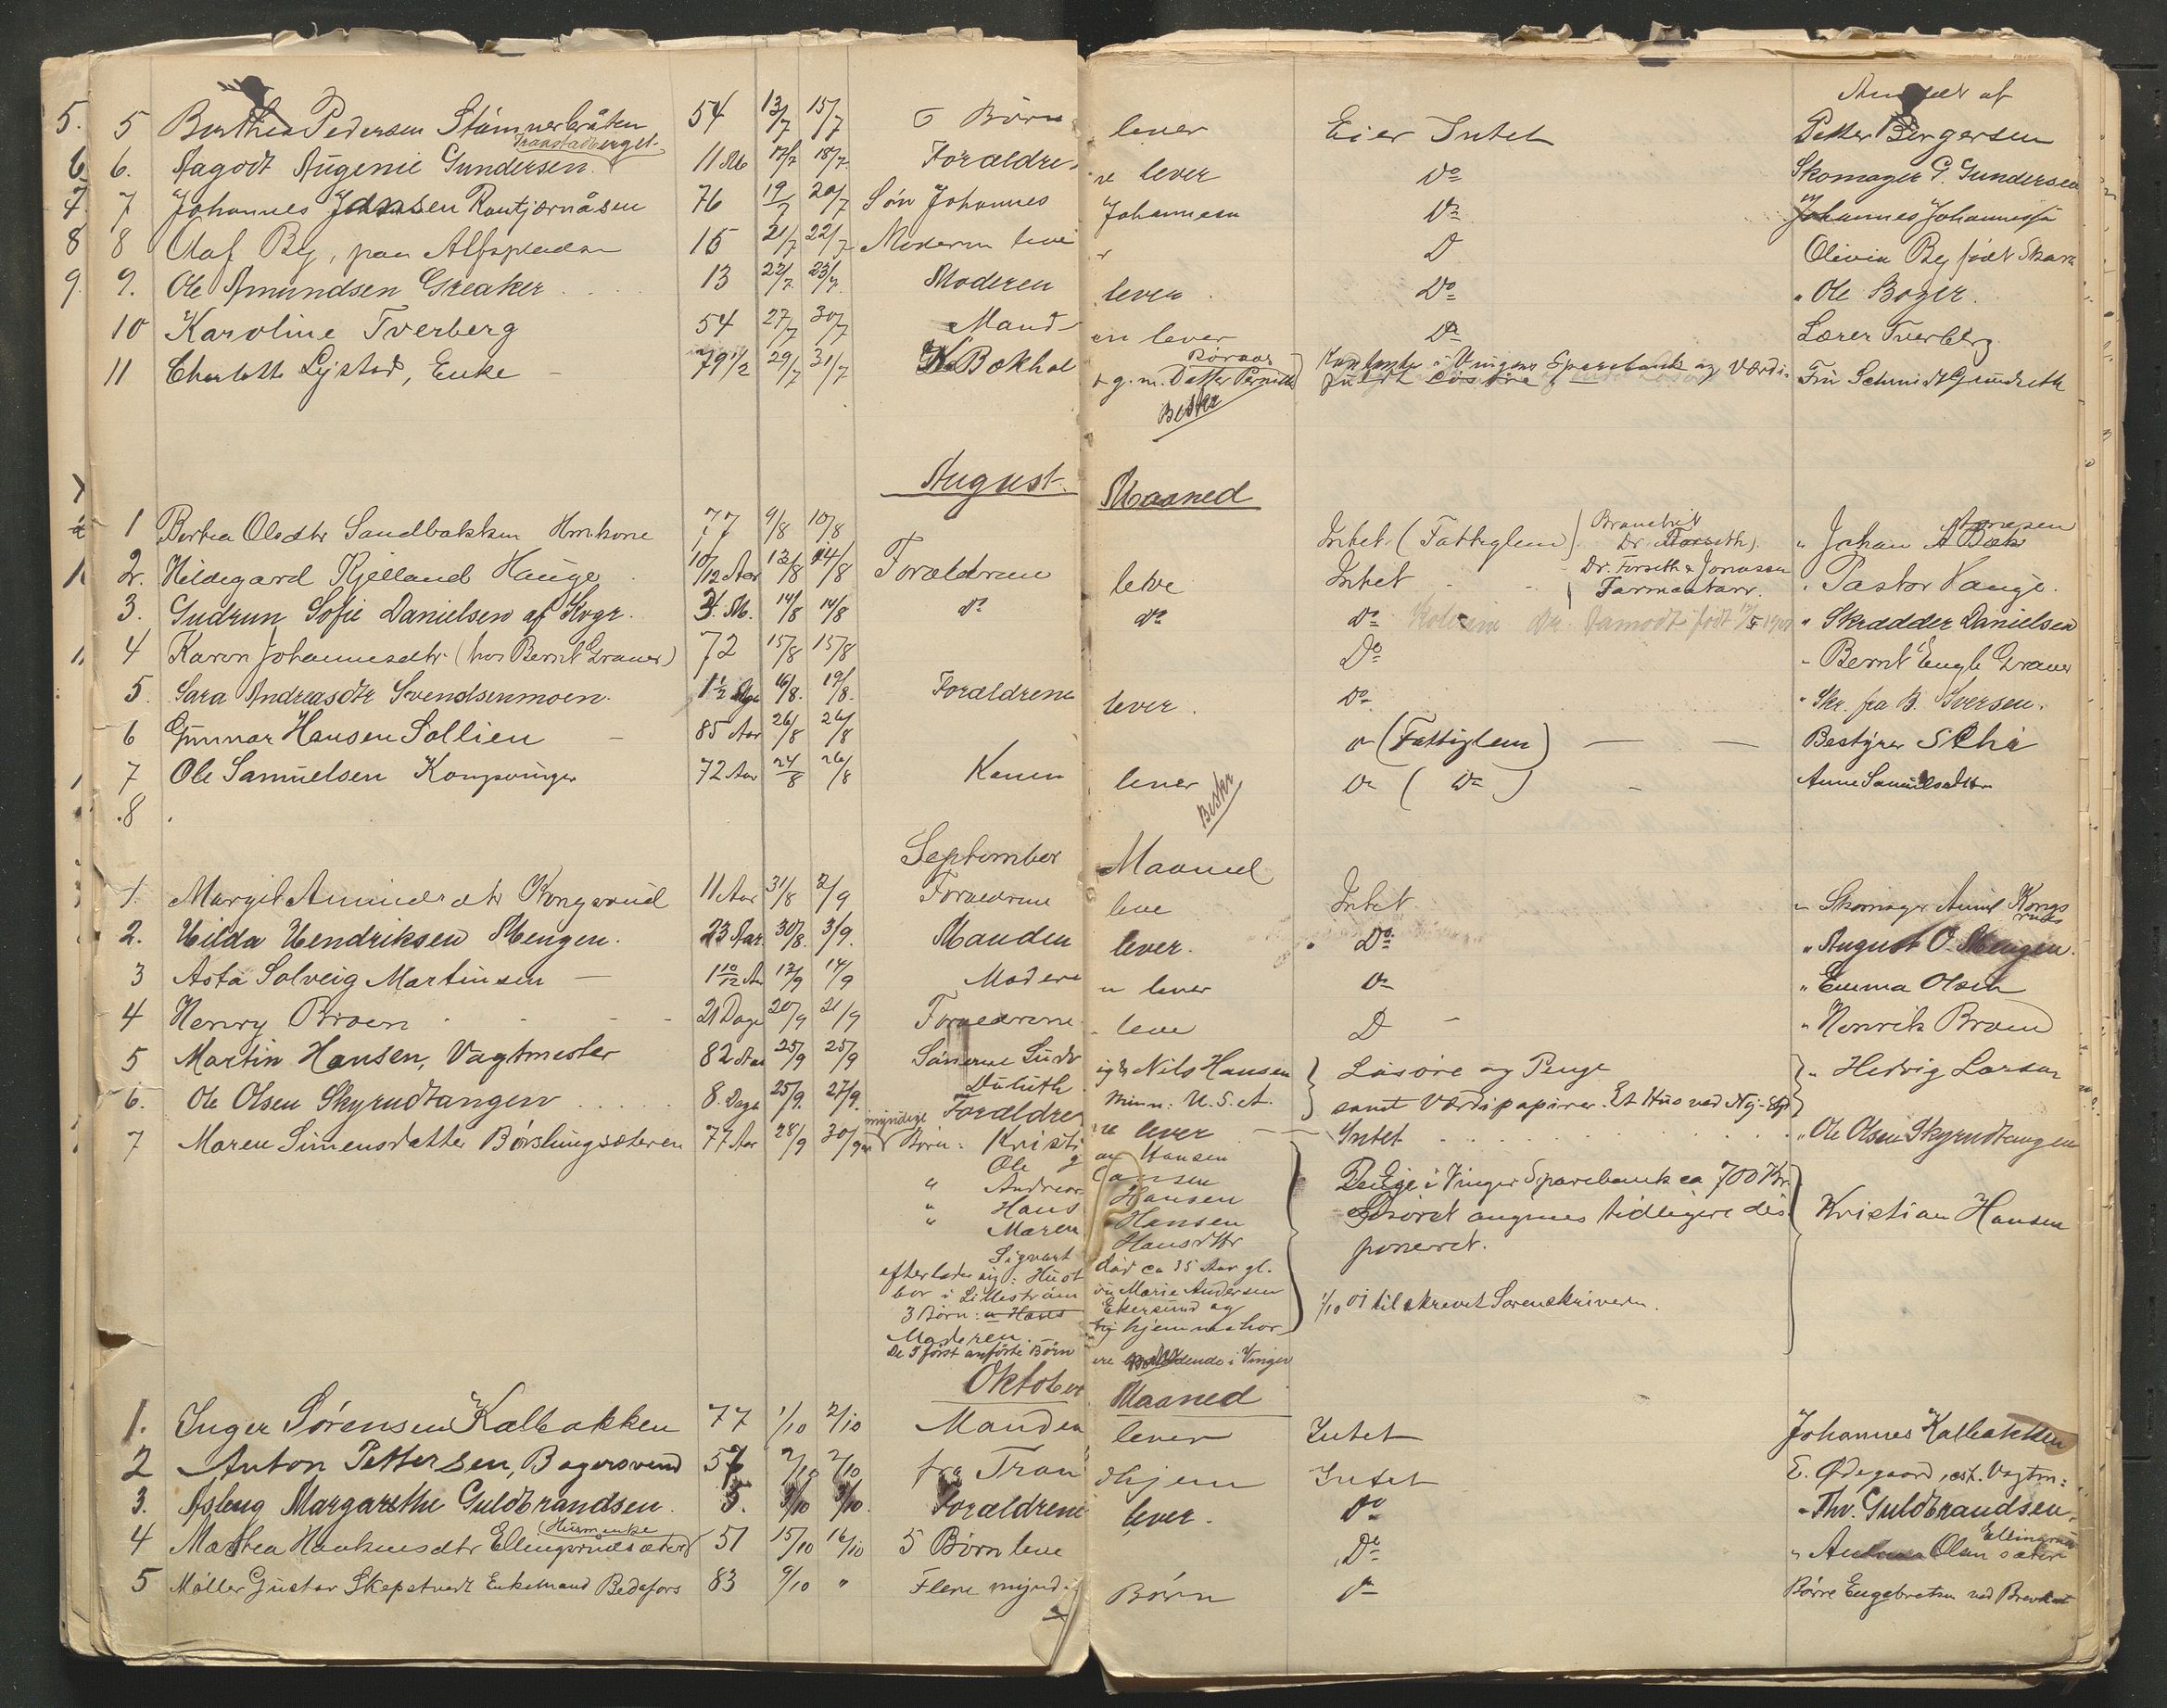 Anmeldt af
5. 5 Berthea Pedersen Stömnerbråten 54 13/7 15/7 6 Børn lever Eier Intet Petter Bergersen
Transtadberget
6 6. Aagodt Augenie Gundersen. 11 M 17/7 18/7 Forældrene lever Do Skomager G. Gundersen
7. 7 Johannes Jansen Rontjærnåsen 76 19/7 20/7 Søn Johannes Johannesen Do Johannes Johannessen
8 8 Olaf By, paa Alfspladsen 15 21/7 22/7 Moderen lever D Olivia By født Skara
9. 9. Ole Amundsen Greaker 13 22/7 23/7 Moderen lever Do " Ole Bozer.
10 Karoline Tverberg 54 27/7 30/7 Manden lever Do Lærer Tverberg
11 Charlotte Lystad, Enke 79 1/2 29/7 31/7 Bokhol g. m. Datter Pernille i Vinger Sparebank og Værdi- Fru Schmidt Gundreth
Børnes
Løsøre
Bester
August Maaned
1 Berthea Olsdtr Sandbakken Hmkone 77 9/8 10/8 Intet (Fattiglem) Dr. Forseth) " Johan A Bæk
Arnesen
2. Hildegard Kjelland Hauge 10/12 Aar 13/8 14/8 Forældrene leve Intet Dr. Forseth & Jonassen " Pastor Hauge.
3. Gudrun Sofie Danielsen af Kvgr. 3. M. 14/8 14/8 do do do født 1901 " Skrædder Danielsen
4 Karen Johannesdtr (hos Bernt Graner) 72 15/8 15/8 Do " Bernt Engb Graner
5. Sara Andreasdtr Svendsenmoen. 1 1/2 16/8. 19/8. Forældrene lever. Do " Skr. fra B. Iversen.
6 Gunnar Hansen Sollien 85 Aar 26/8 26/8 do (Fattiglem) Bestyrer Schie
7 Ole Samuelsen Kongsvinger 72 Aar 24/8 26/8 Konen lever Do ( Do ) Anne Samuelsdtr
Bester
.8 .
September Maaned
1. Margit Amundsdtr Kongsrud 11 Aar 31/8 2/9 Forældrene leve Intet " Skomager Amund Kongsrud
2. Hilda Hendriksen Mengen. 23 Aar 30/8. 3/9. Manden lever. Do " August O. Mengen.
3 Asta Solveig Martinsen 1 10/12 Aar 12/9 14/9 Moderen lever Do " Emma Olsen
4 Henry Broen 21 Dage 20/9 21/9 Forældrene leve D " Henrik Broen
5 Martin Hansen, Vagtmester 82 Aar 25/9 25/9 Sönerne Ludvig & Nils Hansen Løsöre og Penge " Hedvig Larsen
Duluth Minn. U.S.A. samt Værdipapirer. Et Hus ved
6. Ole Olsen Skyrudtangen 8. Dage 25/9. 27/9. Forældrene lever Intet " Ole Olsen Skyrudtangen
7 Maren Simensdatter Börslungsæteren 77 Aar 28/9 30/9 myndige Børn: Kristian Hansen
Ole Hansen Penge i Vinger Sparebank ca 700 Kr.
" Andreas Hansen Løsøret angives tidligere disponeret. Kristian Hansen
" Hans Hansen
" Maren Hansdtr
Sigvart död ca 35 Aar gl.
efterlader sig: Hustru Marie Andersen
bor i Lilleström Ekersund og 1/10 01 tilskrevet Sorenskriveren.
3 Børn: hjemme hos
Moderen.
De 5 først anförte Børn ere boende i Vinger
Oktober Maaned
1. Inger Sörensen Kalbakken 77 1/10 2/10 Manden lever Intet Johannes Kalbakken
2 Anton Pettersen, Bagersvend 57 2/10 2/10 fra Trondhjem Intet E. Ødegaard, ast. Vagtm:
3. Aslaug Margarethe Guldbrandsen. 5. 3/10 3/10. Forældrene lever. Do " Thv. Guldbrandsen.
4 Marthea Haakensdtr Ellingsrudsæter 51 15/10 16/10 5 Børn leve Do " Olsen Ellingsrudsæter
Husmenke
5 Möller Gustav Skepstvedt Enkemand Bedafors 83 9/10 " Flere mynd. Børn Do Børre Engebretsen ved